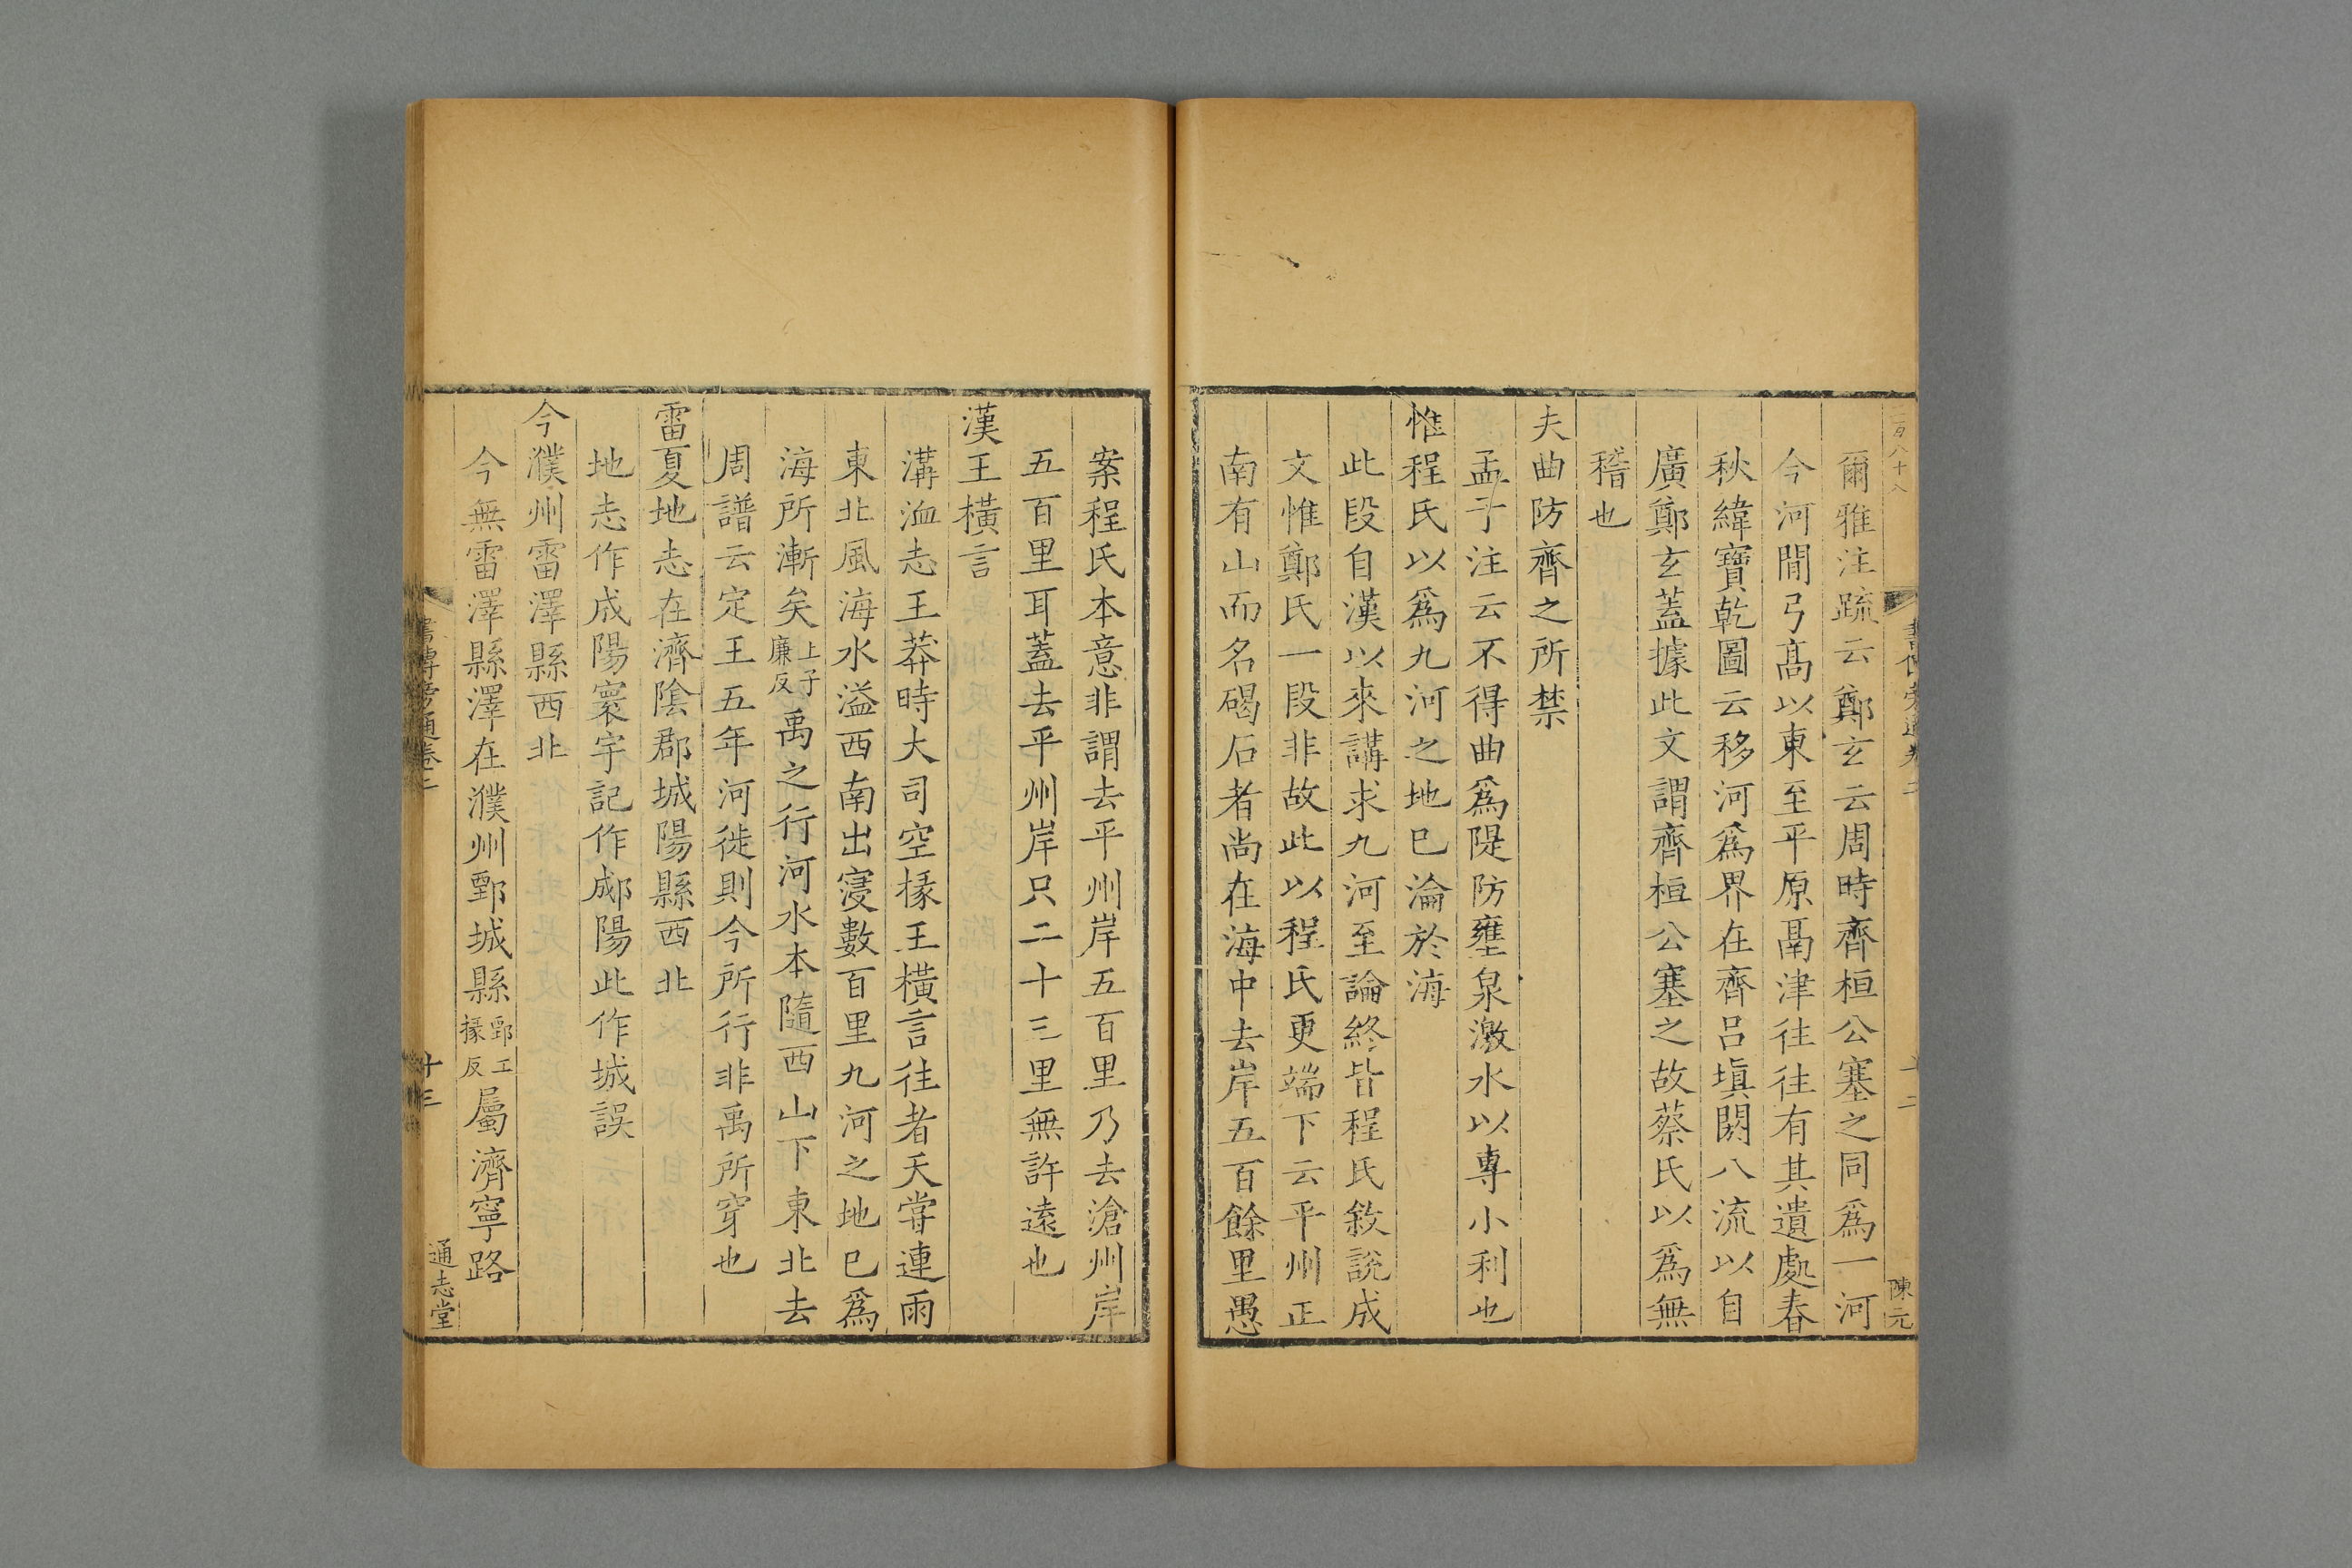 爾雅注疏云鄭玄云周時齊桓公塞之同爲一河
今河間弓高以東至平原鬲津往往有其遺處春
秋緯寶乾圖云移河爲界在齊呂塡閼八流以自
廣鄭玄蓋據此文謂齊桓公塞之故蔡氏以爲無
稽也
夫曲防齊之所禁
孟子注云不得曲爲隄防壅泉激水以專小利也
惟程氏以爲九河之地已淪於海
此段自漢以來講求九河至論終皆程氏敘說成
文惟鄭氏一段非故此以程氏更端下云平州正
南有山而名碣石者尚在海中去岸五百餘里愚
案程氏本意非謂去平州岸五百里乃去滄州岸
五百里耳蓋去平州岸只二十三里無許遠也
漢王橫言
溝洫志王莽時大司空掾王橫言往者天嘗連雨
東北風海水溢西南出寖數百里九河之地已爲
海所漸矣上子廉反禹之行河水本隨西山下東北去
周譜云定王五年河徙則今所行非禹所穿也
雷夏地志在濟陰郡城陽縣西北
地志作成陽寰宇記作郕陽此作城誤
今濮州雷澤縣西北
今無雷澤縣澤在濮州鄄城縣鄄工掾反屬濟寧路
書傳旁通卷二
十三
通志堂
陳元